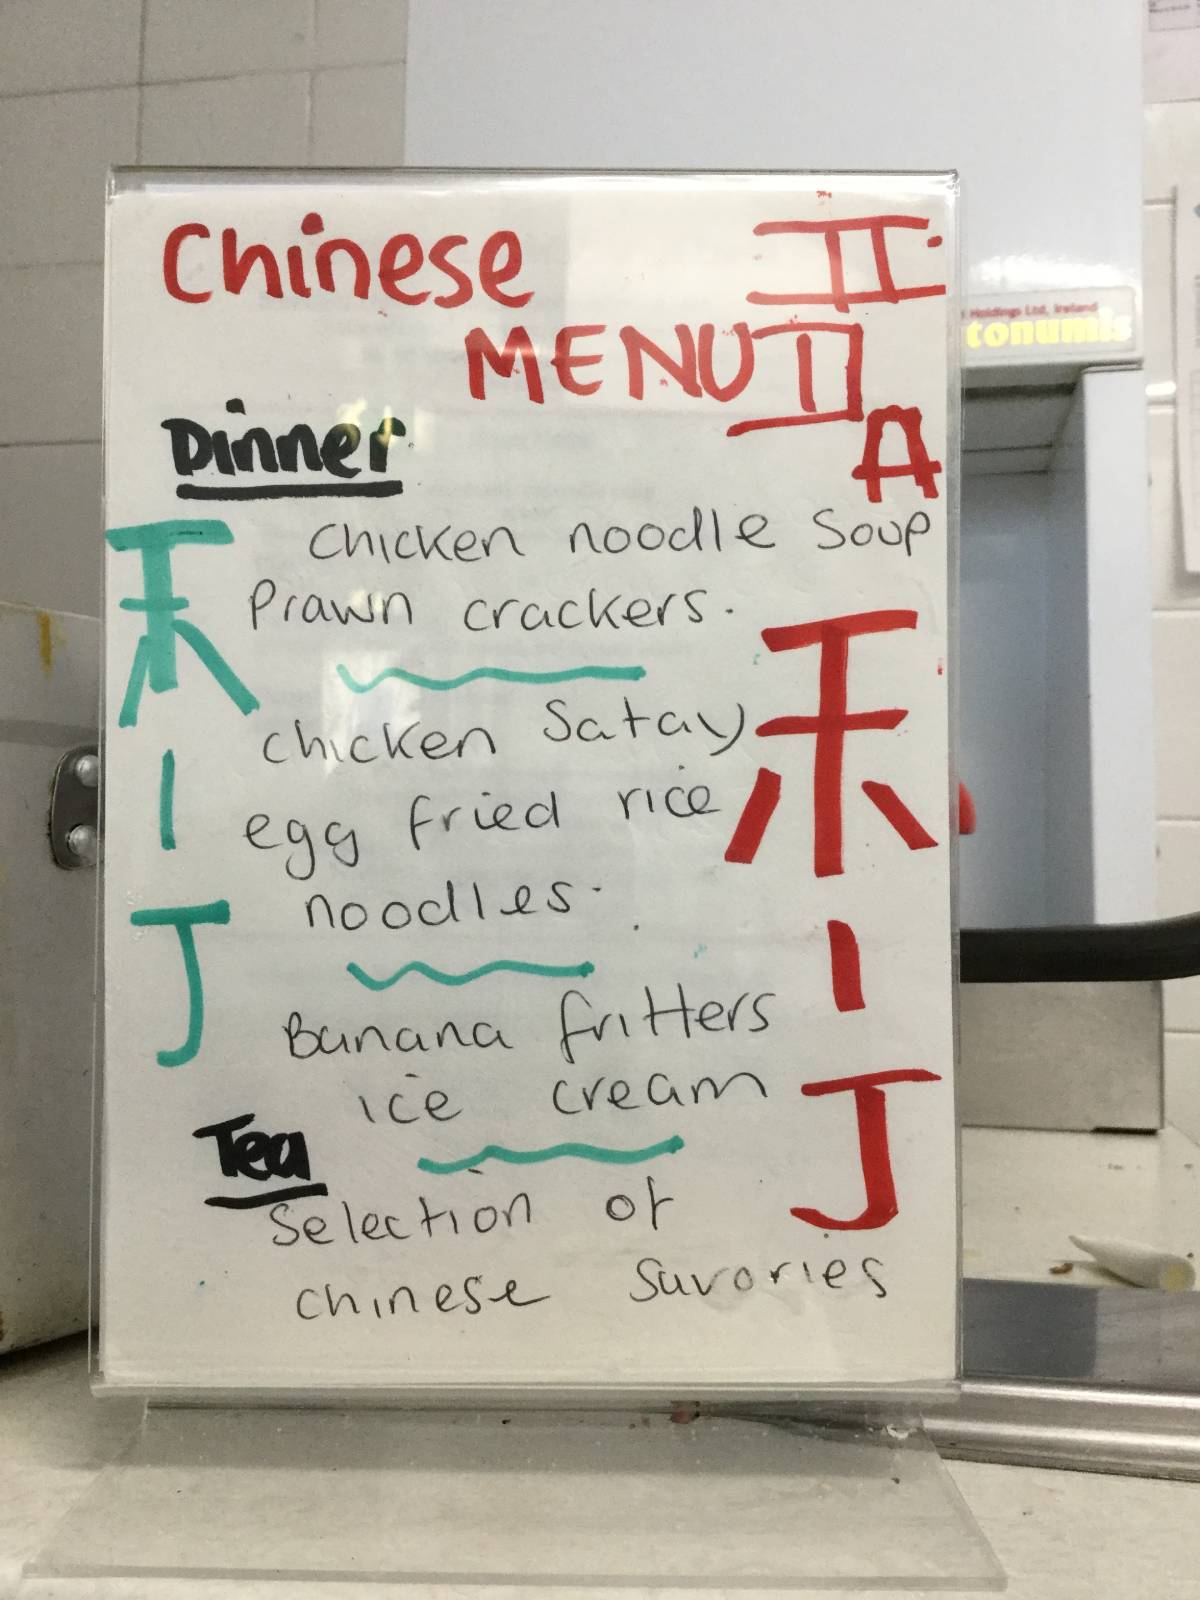 Chinese
MENU
Dinner
Chicken noodle Soup
Prawn crackers.
chicken Satay
egg fried rice
noodles.
Banana fritters
ice cream
Tea
Selection of
chinese Savories
Holdings Ltd, Ireland
tonumis